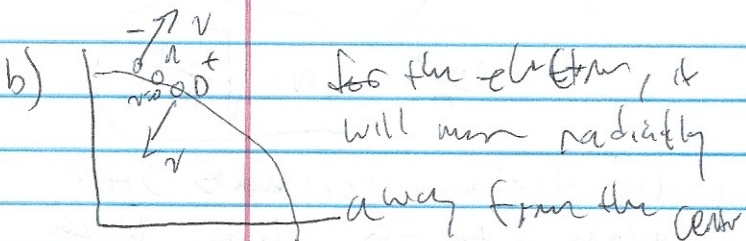 b)
- v
n +
v=0 D
v
for the electron, it
will move radially
away from the center